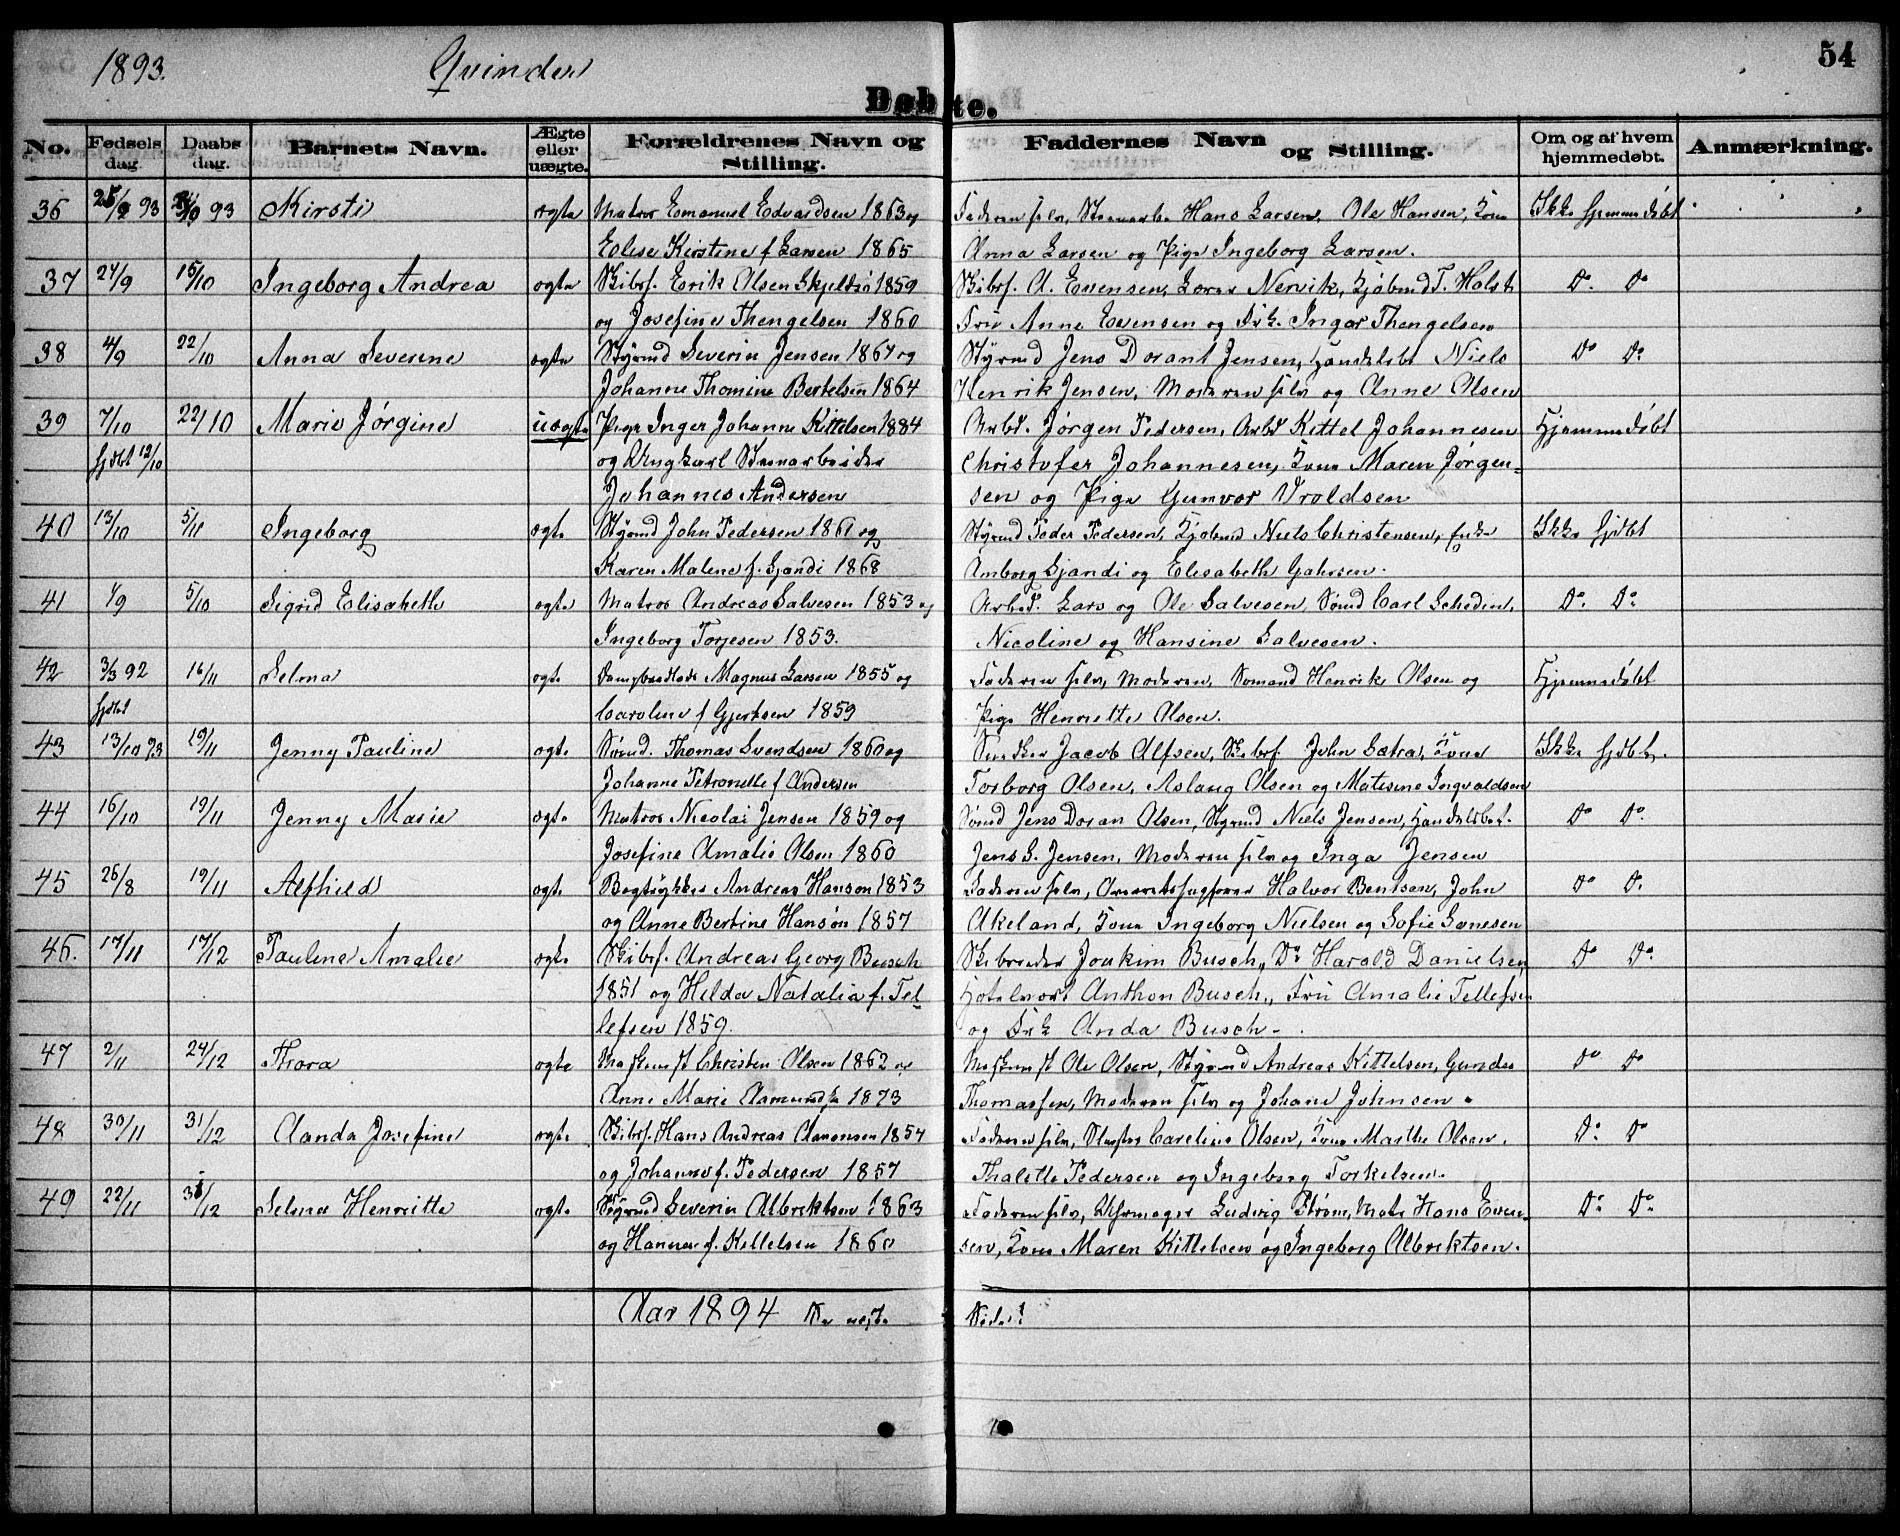 1893. Qvinder 54
Døbte.
No. Fødsels dag. Daabs dag. Barnets Navn. Ægte eller uægte. Forældrenes Navn og Stilling. Faddernes Navn og Stilling. Om og af hvem hjemmedøbt. Anmærkning.
36 93 93 Kirsti ægte Matros Emanuel Edvardsen 1863 og Faderen selv, Hans Larsen, Ole Hansen, Kone Ikke hjemmedøbt
Elise Kirstine f Larsen 1865 Anna Larsen og Pige Ingeborg Larsen.
37 27/9 15/10 Ingeborg Andrea ægte Skibsf. Erik Olsen Skjeldsø 1859 Skibsf. A. Evensen, Lorens Nervik, Kjøbmd T. Holst Do Do
og Josefine Thengelsen 1860 Fru Anne Evensen og Frk. Inger Thengelsen
38 4/9 22/10 Anna Severine ægte Styrmd Severin Jensen 1864 og Styrmd Jens Dorant Jensen, Handelsbt Niels Do Do
Johanne Thomine Bertelsen 1864 Henrik Jensen, Moderen selv og Anne Olsen
39 7/10 22/10 Marie Jørgine uægte Pige Inger Johanne Kittelsen 1884 Arbd. Jørgen Pedersen, Arbd Kittel Johannesen Hjemmedøbt
hjdbt 12/10 og Ungkarl Stenarbeider Christofer Johannesen, Kone Maren Jørgen-
Johannes Andersen sen og Pige Gunvor Vroldsen
40 13/10 5/11 Ingeborg ægte Styrmd John Pedersen 1861 og Styrmd Peder Pedersen, Kjøbmd Niels Christensen, Enke Ikke hjdbt
Karen Malene f. Gjandi 1868 Amborg Gjandi og Elisabeth Gahrsen.
41 1/9 5/10 Sigrid Elisabeth ægte Matros Andreas Salvesen 1853 og Arbed. Lars og Ole Salvesen, Sømd Carl Schedin, Do. Do.
Ingeborg Torjesen 1853. Nicoline og Hansine Salvesen.
42 3/3 92 16/11 Selma ægte Magnus Larsen 1855 og Faderen selv, Moderen, Sømand Henrik Olsen og Hjemmedøbt
hjdbt Caroline f Gjertsen 1859 Pige Henriette Olsen.
43 13/10 93 19/11 Jenny Pauline ægte Sømd. Thomas Svendsen 1860 og Snedker Jacob Alfsen, Skibsf John Sætra, Kone Ikke hjdbt.
Johanne Petronelle f Andersen Torborg Olsen, Aslaug Olsen og Matisine Ingvaldsen
44 16/10 19/11 Jenny Marie ægte Matros Nicolai Jensen 1859 og Sømd Jens Doran Olsen, Styrmd Niels Jensen, Handelsbet. Do Do.
Josefine Amalie Olsen 1860 Jens S. Jensen, Moderen selv og Inga Jensen
45 26/8 19/11 Alfhild ægte Bogtrykker Andreas Hanson 1853 Faderen selv, Halvor Bentsen, John Do Do.
og Anne Bertine Hansøn 1857 Akeland, Kone Ingeborg Nielsen og Sofie Sønesen
46. 17/11 17/12 Pauline Amalie ægte Skibsf. Andreas Georg Busch Skibsreder Joakim Busch, Do Harald Danielsen Do Do.
1851 og Hilda Natalia f. Tel- Hotelvært Anthon Busch, Fru Amalie Tellefsen
lefsen 1859. og Frk Anda Busch-
47 2/11 24/12 Thora ægte Maskinist Christen Olsen 1862 og Maskinist Ole Olsen, Styrmd Andreas Kittelsen, Gunder Do Do
Anne Marie Aamundsen 1873 Thomassen, Moderen selv og Johane Johnsen.
48 30/11 31/12 Aanda Josefine ægte Skibsf. Hans Andreas Aanonsen 1854 Faderen selv, Caroline Olsen, Kone Marthe Olsen. Do. Do
og Johanne f. Pedersen 1857 Thalette Pedersen og Ingeborg Torkelsen.
49 22/11 31/12 Selma Henriette ægte Styrmd Severin Albrektsen 1863 Faderen selv, Uhrmager Ludvig Strøm, Mats Hans Even- Do. Do
og Hanna f. Kittelsen 1860 sen, Kone Maren Kittelsen og Ingeborg Albrektsen.
Aar 1894 Se næste Side!